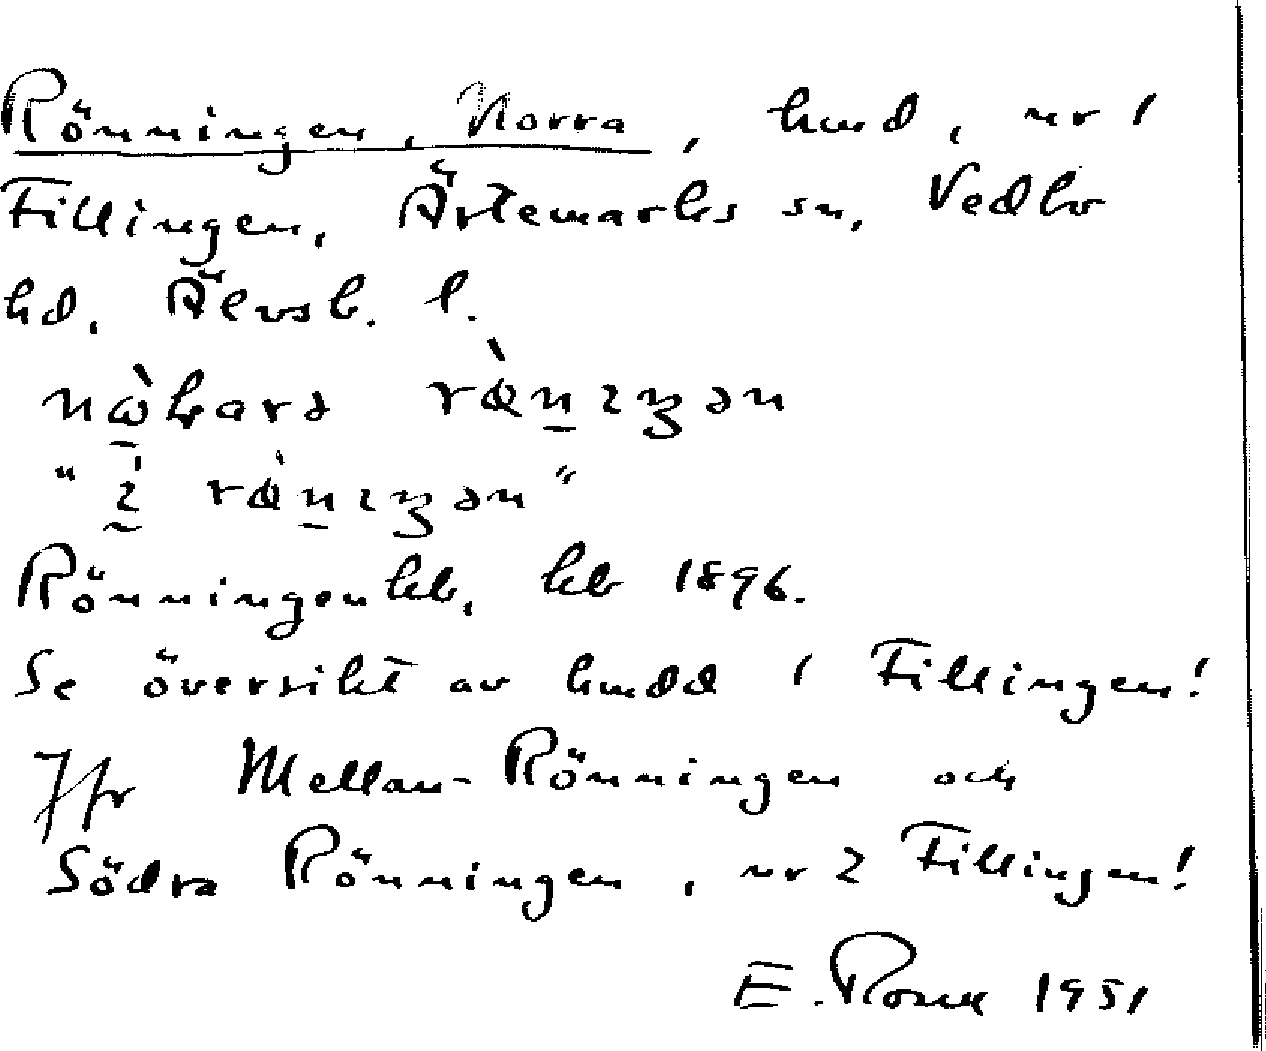 Rönningen, Norra, hmd, nr 1
Fillingen, Ärtemarks sn, Vedbo
hd, Älvsb. l.
Rönningen hb, kb 1896.
Se översikt av hmdd 1 Fillingen!
Jfr Mellan-Rönningen och
Södra Rönningen, nr 2 Fillingen!
E. 1951